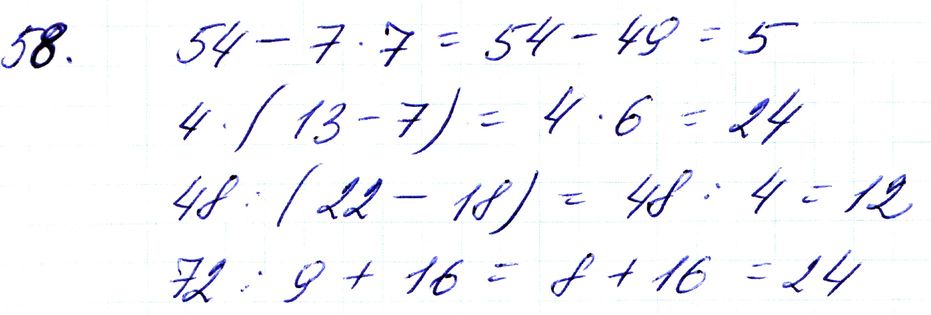 58. 54 - 7 · 7 = 54 - 49 = 5
4 · ( 13 - 7 ) = 4 · 6 = 24
48 : ( 22 - 18 ) = 48 : 4 = 12
72 : 9 + 16 = 8 + 16 = 24